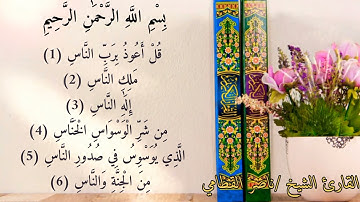 بِسْمِ اللَّهِ الرَّحْمَٰنِ الرَّحِيمِ
قُلْ أَعُوذُ بِرَبِّ النَّاسِ (1)
مَلِكِ النَّاسِ (2)
إِلَٰهِ النَّاسِ (3)
مِن شَرِّ الْوَسْوَاسِ الْخَنَّاسِ (4)
الَّذِي يُوَسْوِسُ فِي صُدُورِ النَّاسِ (5)
مِنَ الْجِنَّةِ وَالنَّاسِ (6)
القارئ الشيخ /ناصر القطامي